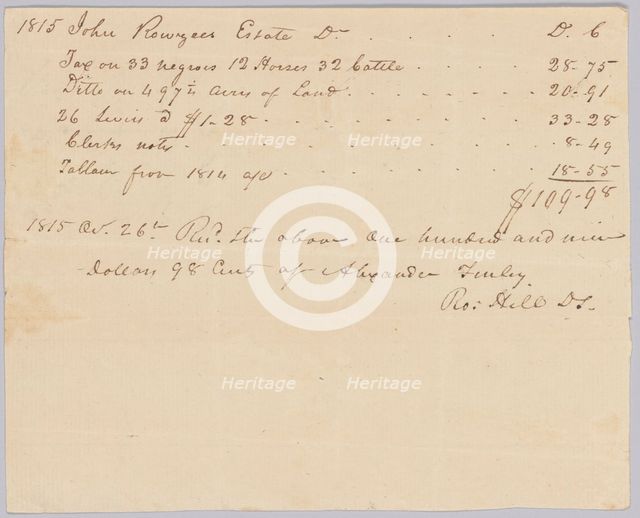 1815 John Rowzees Estate Dr . . . . D. C
Tax on 33 negroes 12 Horses 32 Cattle . . . . 28-75
Ditto on 497¼ acres of Land . . . . . . 20-91
26 Levies @ $1-28 . . . . . . . 33-28
Clerks notes . . . . . . . . 8-49
from 1814 a/c . . . . . . 18-55
$109-98
1815 26th Recd. the above One hundred and nine
Dollars 98 Cents of Alexander Finley.
Ro: Hill DS.
Heritage Heritage
Heritage Heritage
Heritage Heritage
©